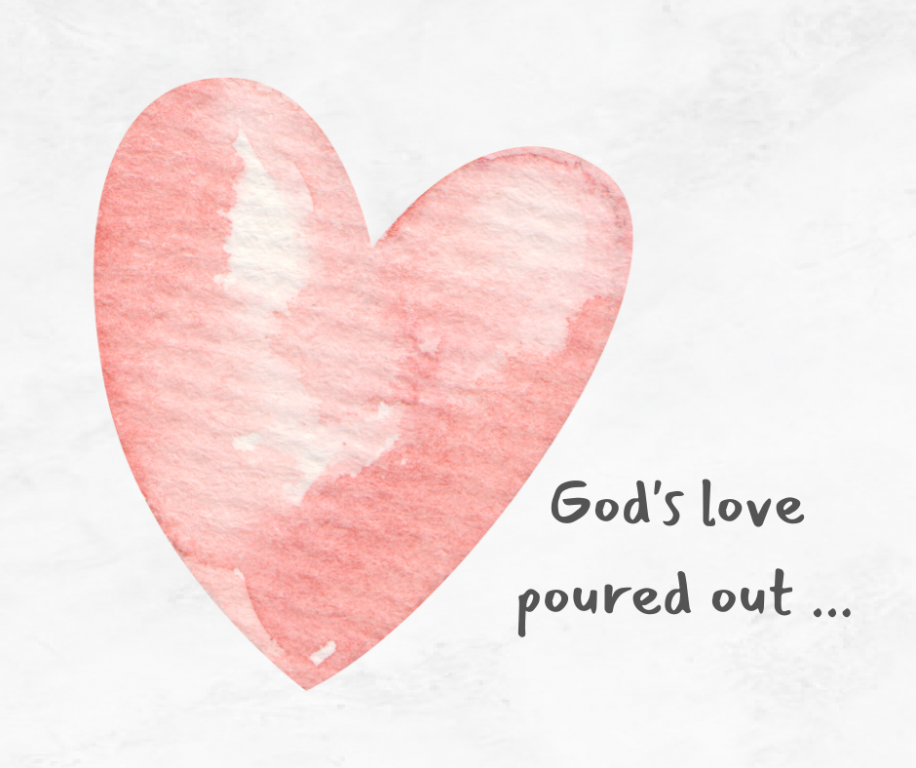 God's love
poured out ...